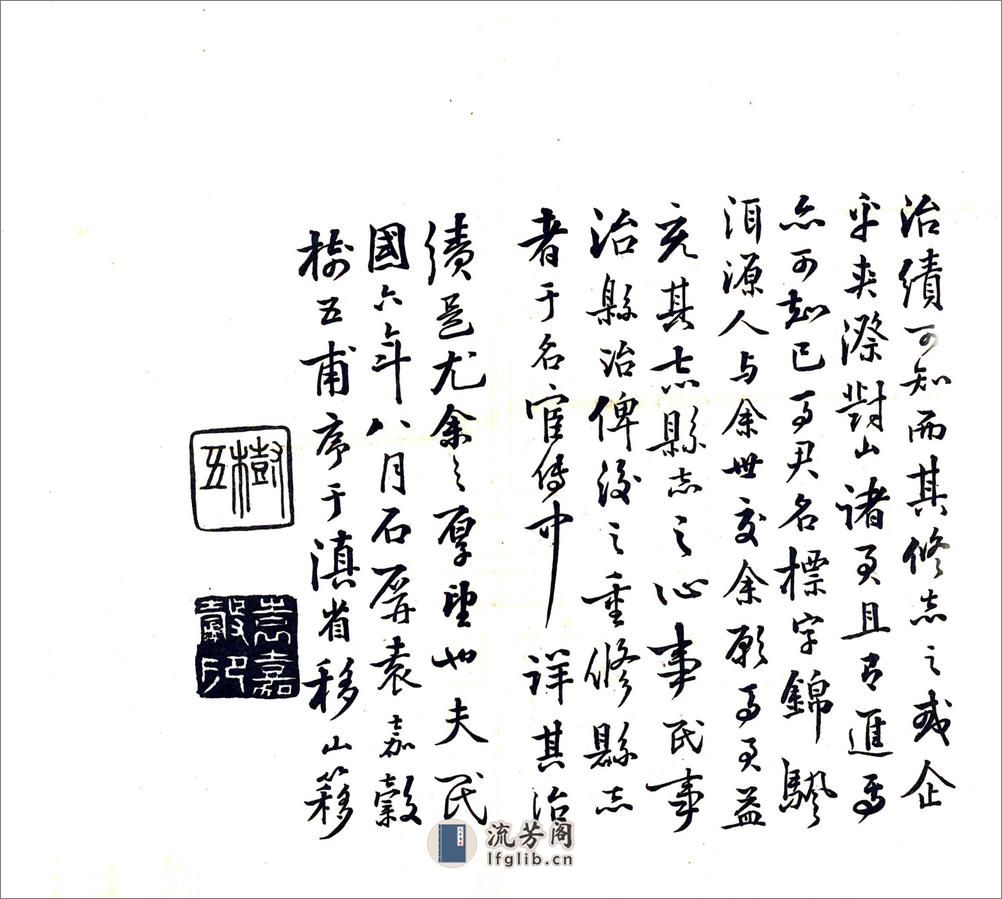 治績可知而其修志之或企
乎夾漈對山諸君且有進焉
亦可知已馬尹名標字錦颿
洱源人与余世交余願馬君益
充其志縣志之心事民事
治縣治俾後之重修縣志
者于名宦傳中詳其治
績是尤余之厚望也夫民
國六年八月石屏袁嘉穀
樹五甫序于滇省移山簃
樹五
袁嘉穀印
流芳阁
lfglib.cn